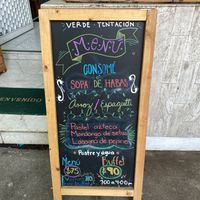 VERDE TENTACIÓN
MENÚ
CONSOMÉ
SOPA DE HABAS
Arroz / Espagueti
Pastel azteca
Mondongo de setas
Lasagna de pepino
Postre y agua
Menú Buffet
$75 $90
1:00 a 4:00 pm
BIENVENIDO